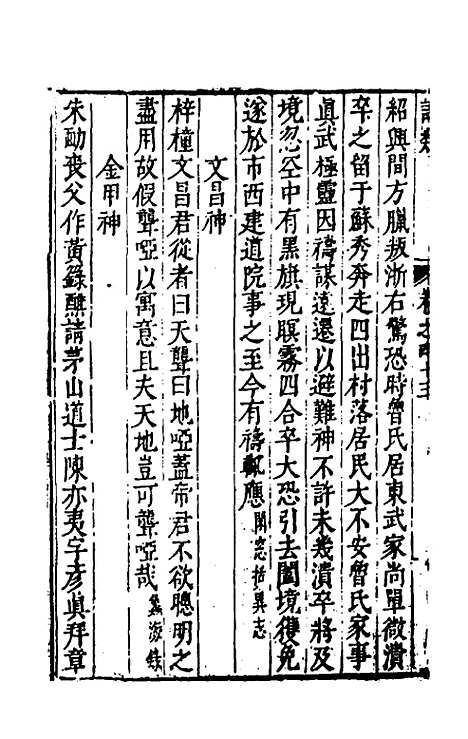 紹興間方臘叛浙右驚恐時曾氏居東武家尚單微潰
卒之留于蘇秀奔走四出村落居民大不安曾氏家事
眞武極靈因禱謀遠還以避難神不許未幾潰卒將及
境忽空中有黑旗現瞑霧四合卒大恐引去闔境獲免
遂於市西建道院事之至今有禱輒應閑窓括異志
文昌神
梓橦文昌君從者曰天聾曰地啞蓋帝君不欲聰明之
盡用故假聾啞以寓意且夫天地豈可聾啞哉蠡海錄
金甲神
朱勔喪父作黃籙醮請茅山道士陳亦夷字彦眞拜章